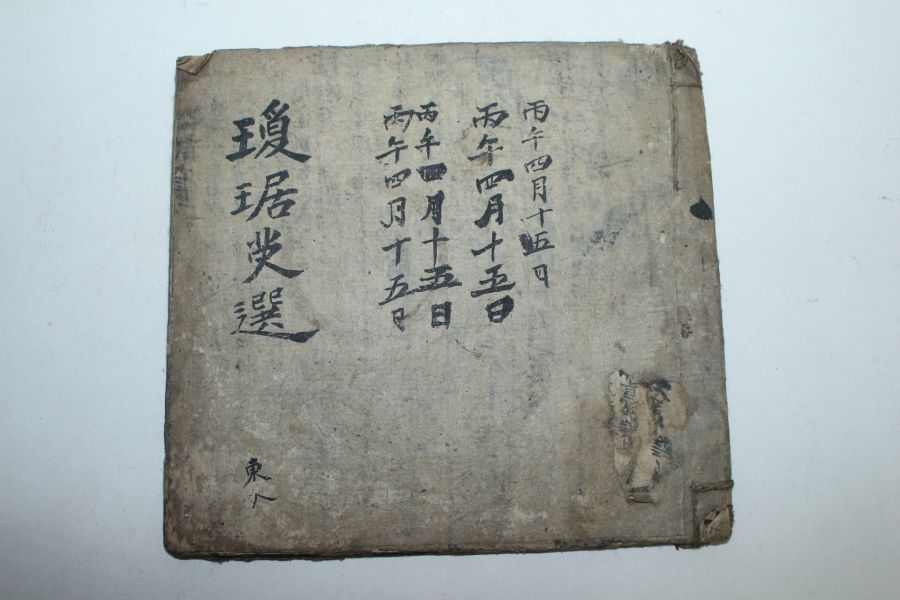 丙午四月十五日
丙午四月十五日
丙午四月十五日
丙午四月十五日
瓊琚英選
東人